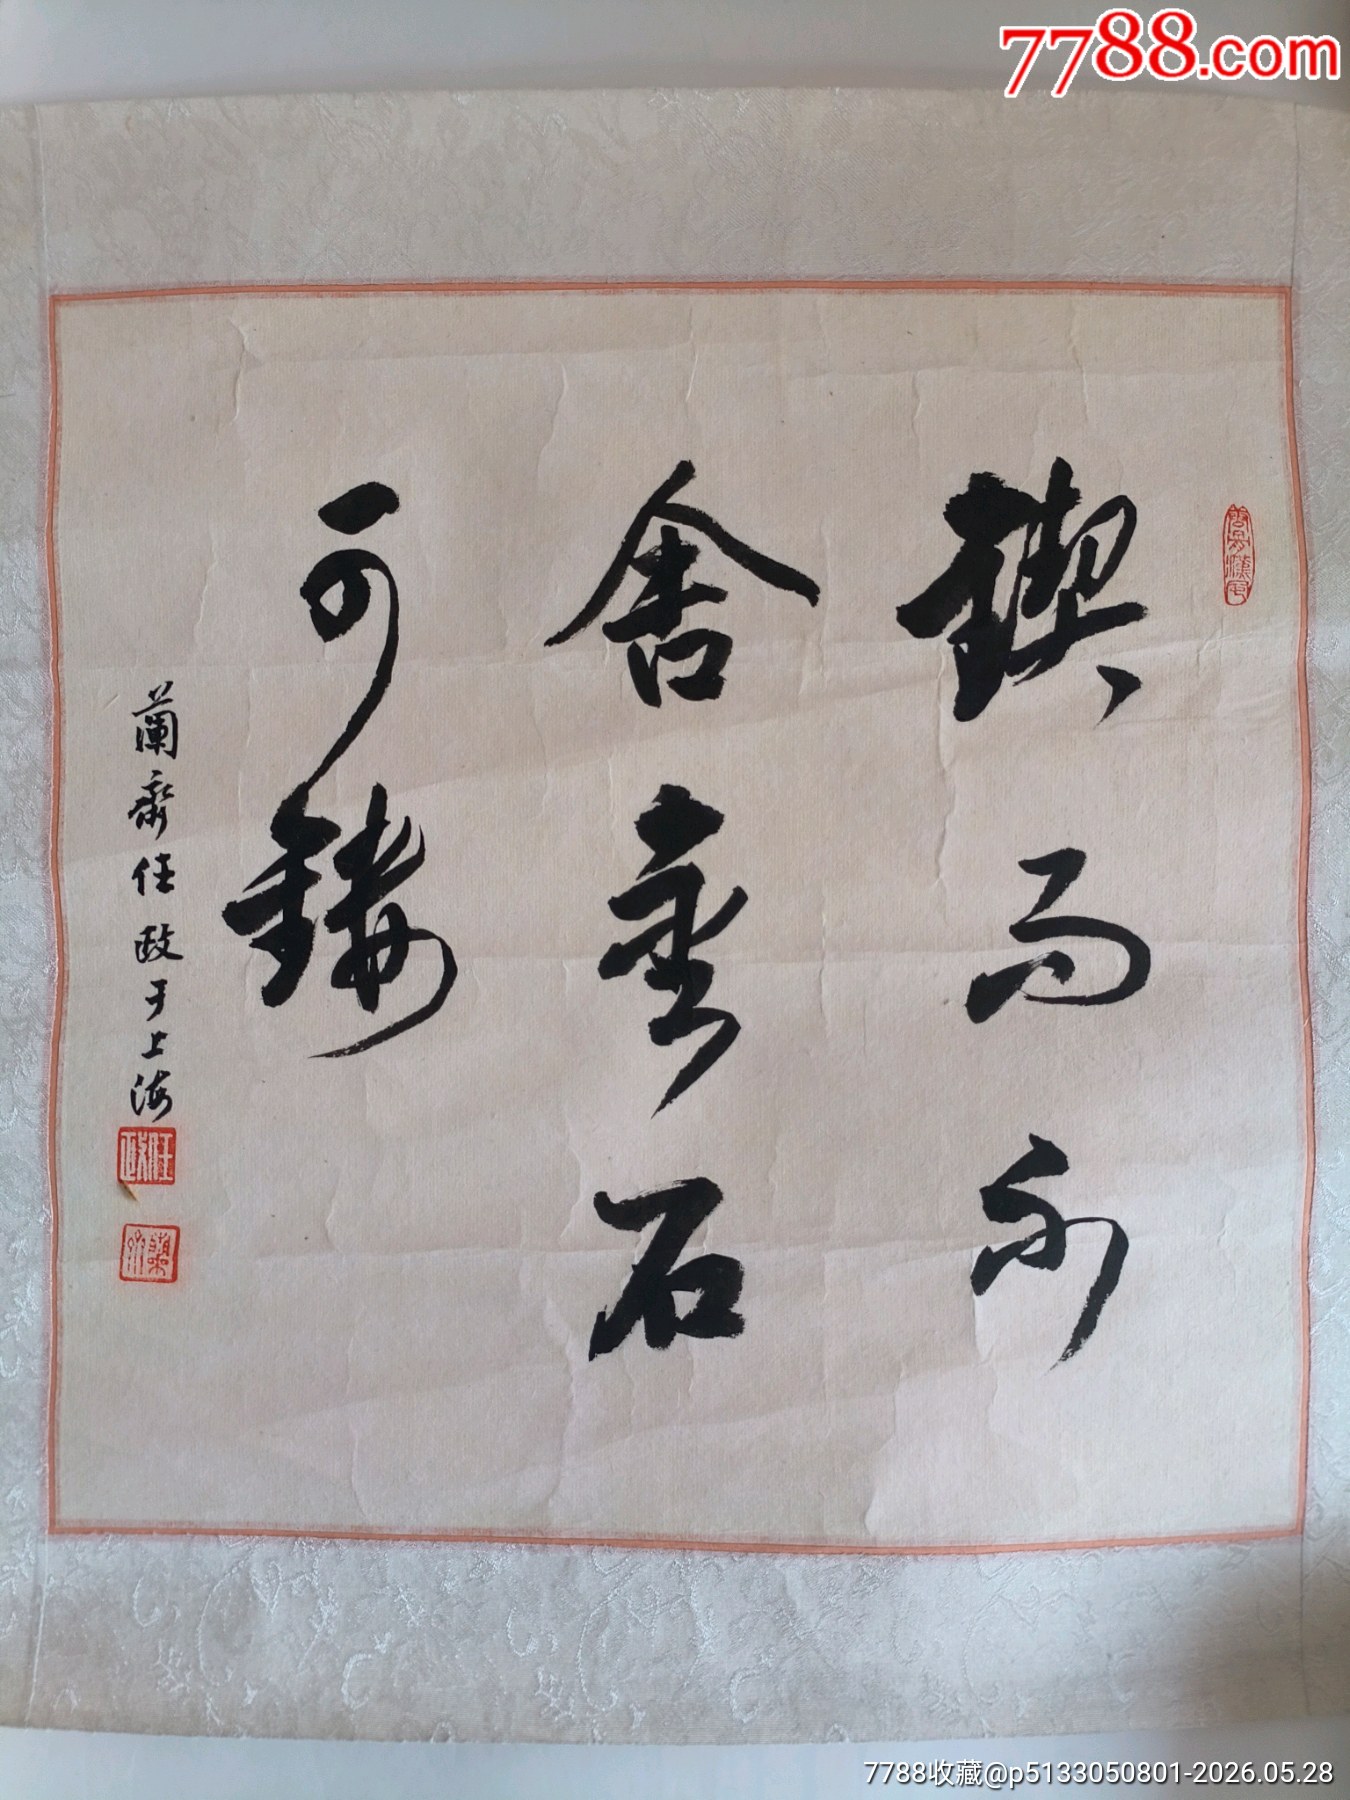 7788.com
鍥而不
舍金石
可鏤
蘭齋任政于上海
任政
7788收藏@p5133050801-2026.05.28